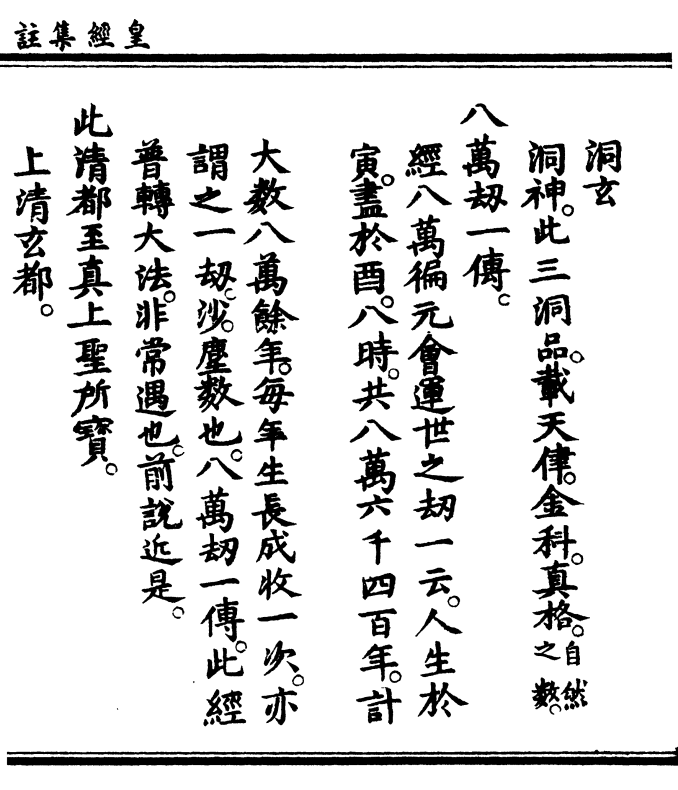 皇經集註
洞玄
洞神。此三洞品。載天律。金科。真格。自然之數。
八萬刼一傳。
經八萬徧元會運世之刼一云。人生於
寅。盡於酉。八時。共八萬六千四百年。計
大数八萬餘年。每年生長成收一次。亦
謂之一刼。沙塵数也。八萬刼一傳。此經
普轉大法。非常遇也。前說近是。
此清都至真上聖所寶。
上清玄都。